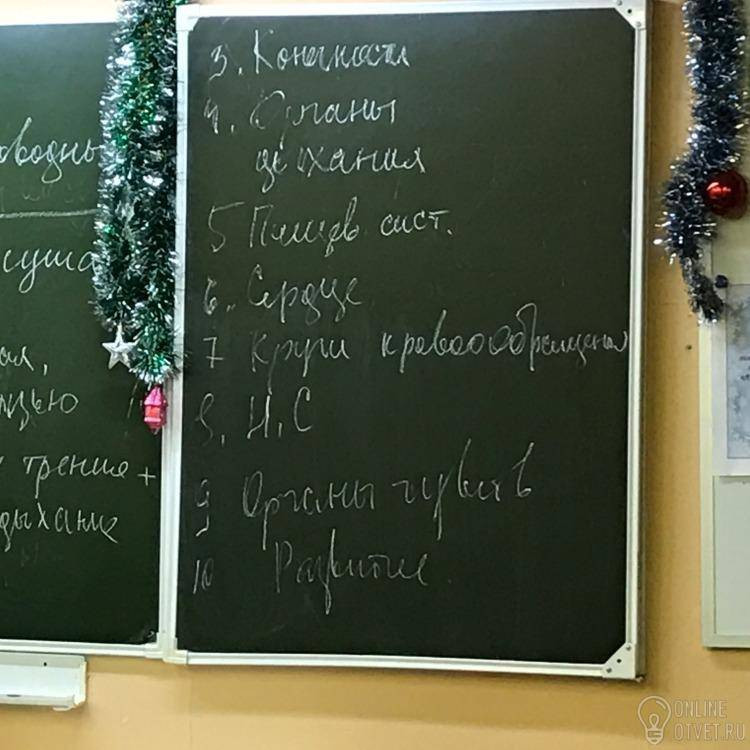 суша
трения +
дыхание
3. Конечности
4. Органы
дыхания
5 Пищев сист.
6. Сердце
7 Круги кровообращения
8. Н.С
9 Органы чувств
10 Развитие
ONLINE
OTVET.RU